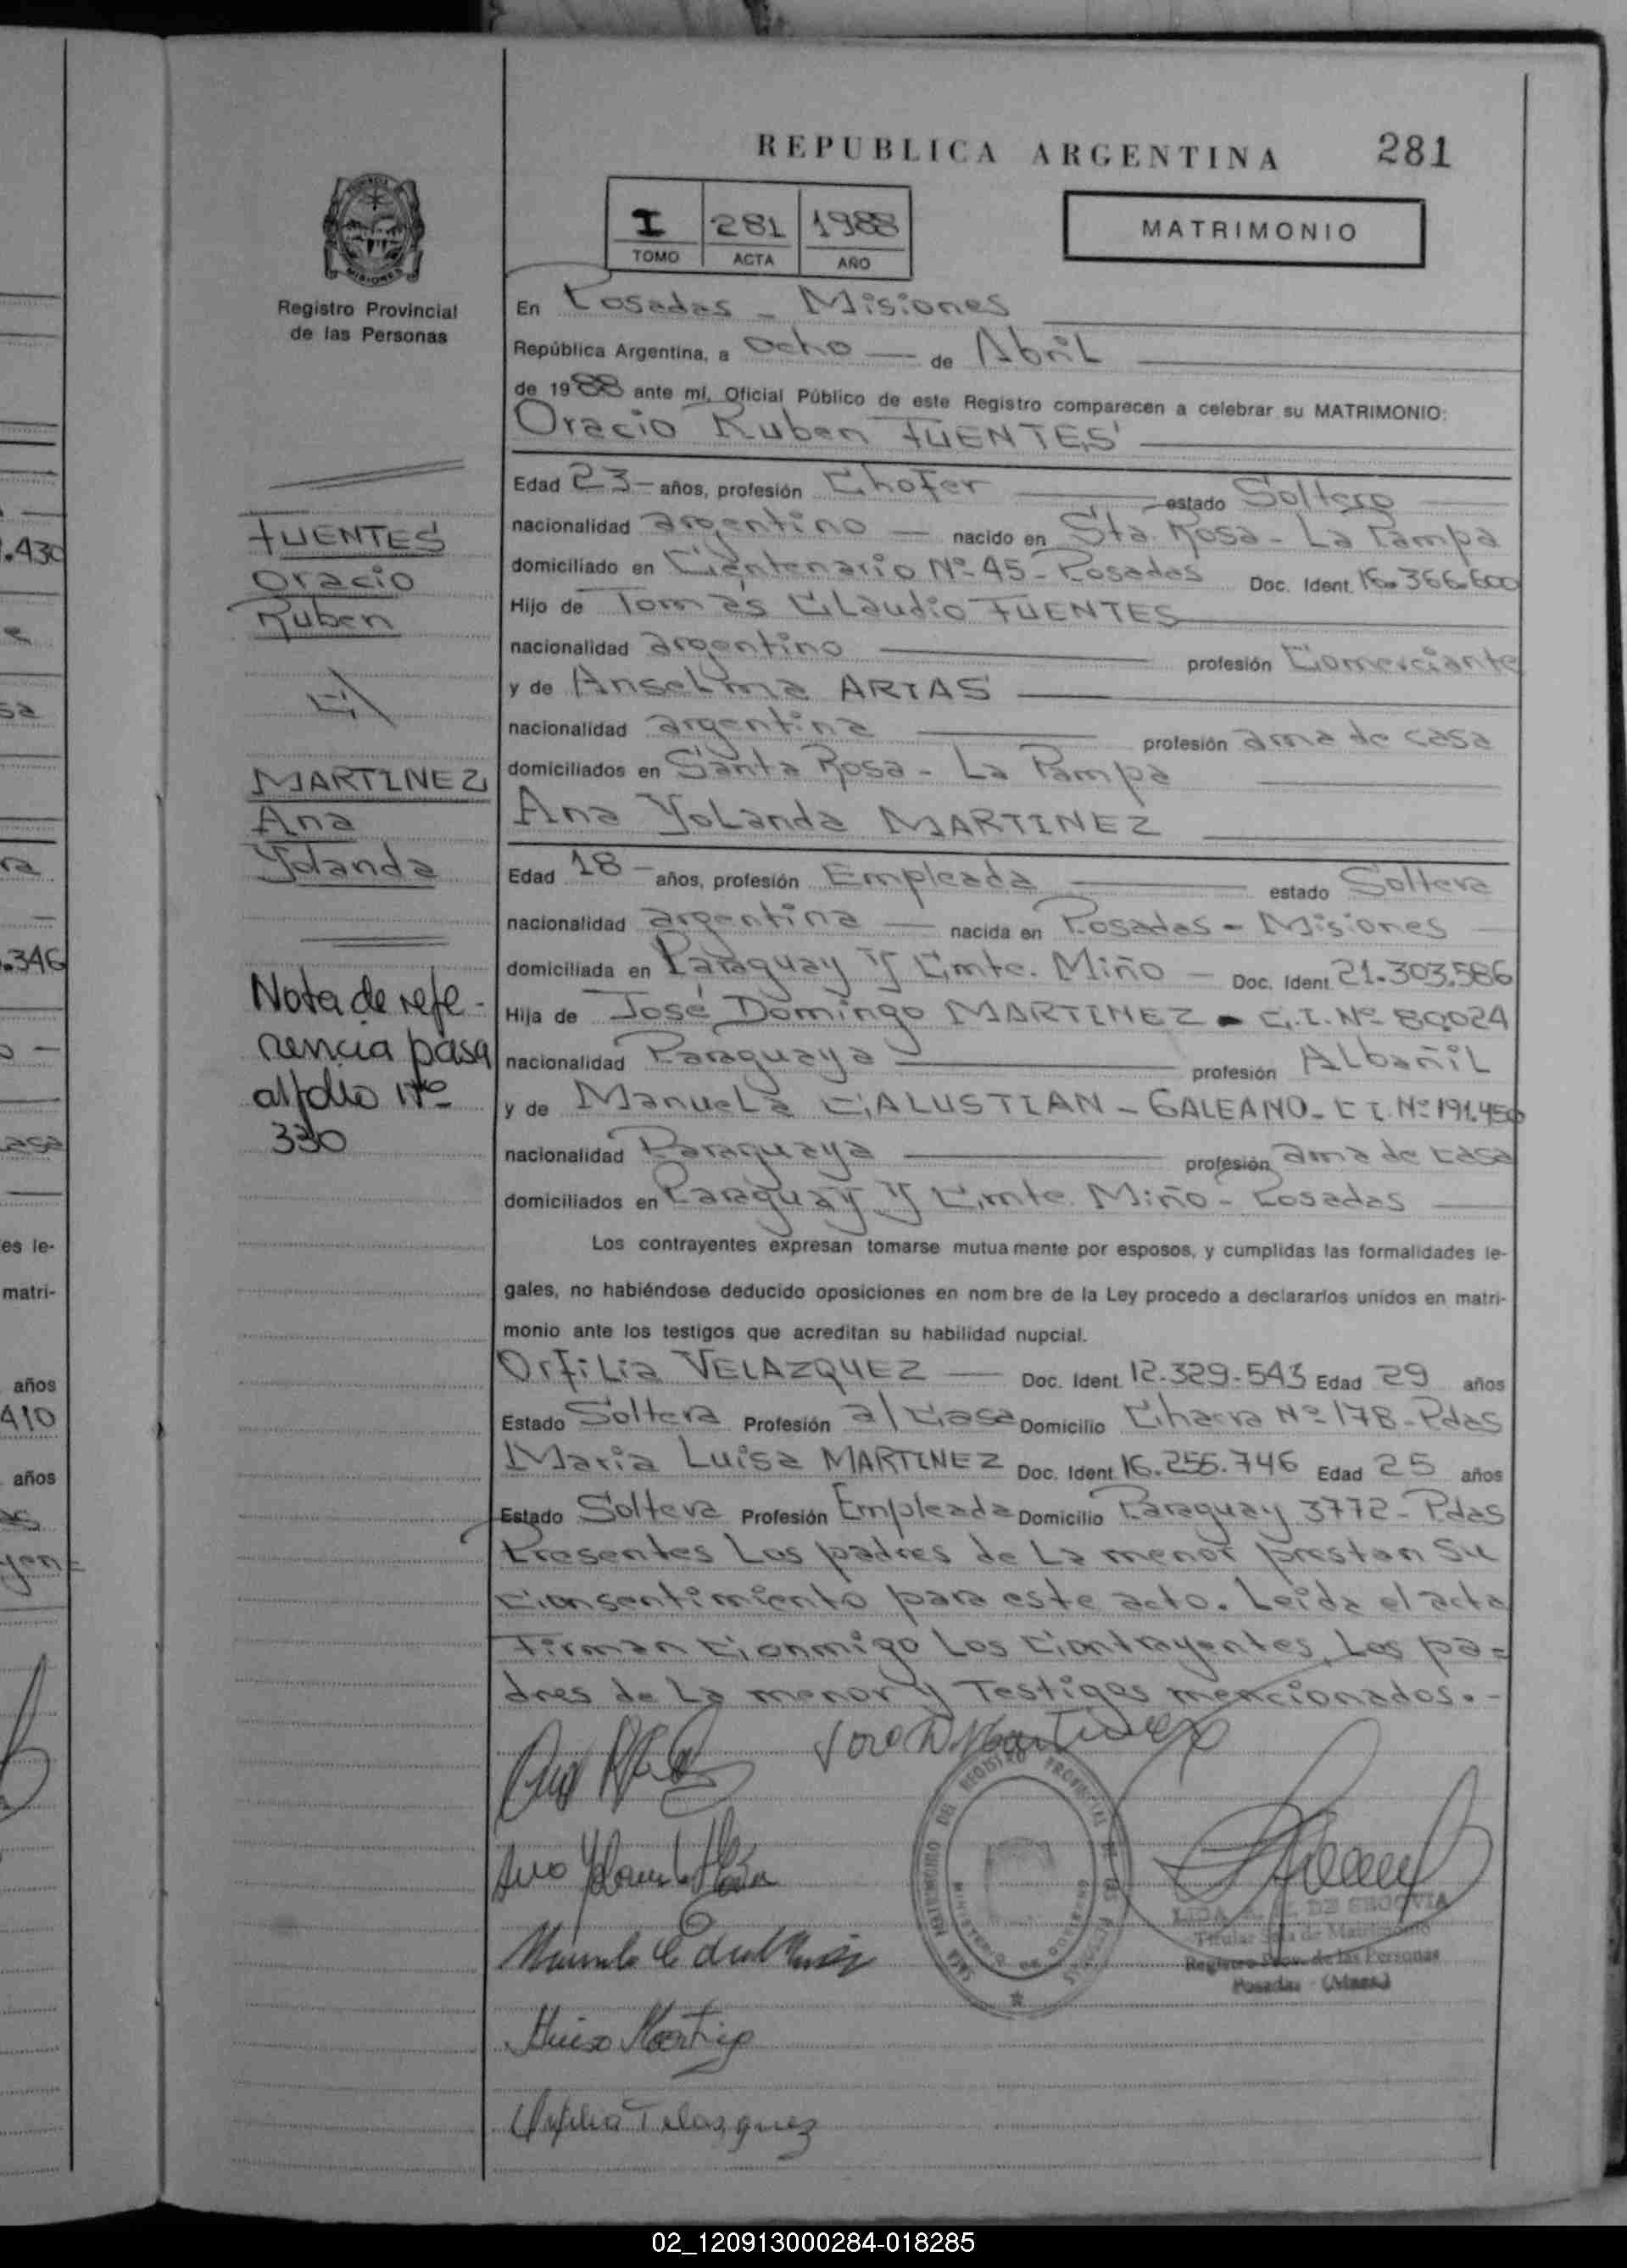 REPUBLICA ARGENTINA
281
I 281 1988
TOMO ACTA AÑO
MATRIMONIO
MISIONES
Registro Provincial
de las Personas
En Posadas - Misiones
República Argentina, a Ocho de Abril
de 1988 ante mí, Oficial Público de este Registro comparecen a celebrar su MATRIMONIO:
Oracio Ruben FUENTES
Edad 23 años, profesión Chofer estado Soltero
nacionalidad argentino nacido en Sta. Rosa - La Pampa
domiciliado en Centenario Nº 45 - Posadas Doc. Ident. 16.366.600
Hijo de Tomás Claudio FUENTES
nacionalidad argentino profesión Comerciante
y de Anselma ARIAS
nacionalidad argentina profesión ama de casa
domiciliados en Santa Rosa - La Pampa
Ana Yolanda MARTINEZ
Edad 18 años, profesión Empleada estado Soltera
nacionalidad argentina nacida en Posadas - Misiones
domiciliada en Paraguay y Cmte. Miño - Doc. Ident. 21.303.586
Hija de José Domingo MARTINEZ - C.I. Nº 80024
nacionalidad Paraguaya profesión Albañil
y de Manuela CALUSTIAN - GALEANO - C I. Nº 191.450
nacionalidad Paraguaya profesión ama de casa
domiciliados en Paraguay y Cmte. Miño - Posadas
Los contrayentes expresan tomarse mutuamente por esposos, y cumplidas las formalidades le-
gales, no habiéndose deducido oposiciones en nombre de la Ley procedo a declararlos unidos en matri-
monio ante los testigos que acreditan su habilidad nupcial.
Orfilia VELAZQUEZ Doc. Ident. 12.329.543 Edad 29 años
Estado Soltera Profesión a/casa Domicilio Chacra Nº 178 - Pdas
Maria Luisa MARTINEZ Doc. Ident. 16.255.746 Edad 25 años
Estado Soltera Profesión Empleada Domicilio Paraguay 3772 - Pdas
Presentes Los padres de La menor prestan su
consentimiento para este acto. Leida el acta
Firman conmigo Los contrayentes, Los pa=
dres de La menor y Testigos mencionados.-
FUENTES
Oracio
Ruben
c/
MARTINEZ
Ana
Yolanda
Nota de refe-
rencia pasa
al folio Nº
330
Jose D Martinez
Orfilia Velazquez
DE SEGOVIA
Titular Sala de Matrimonio
Registro Prov. de las Personas
Posadas (Mnes.)
1.430
.346
asa
es le-
matri-
años
410
años
02_120913000284-018285